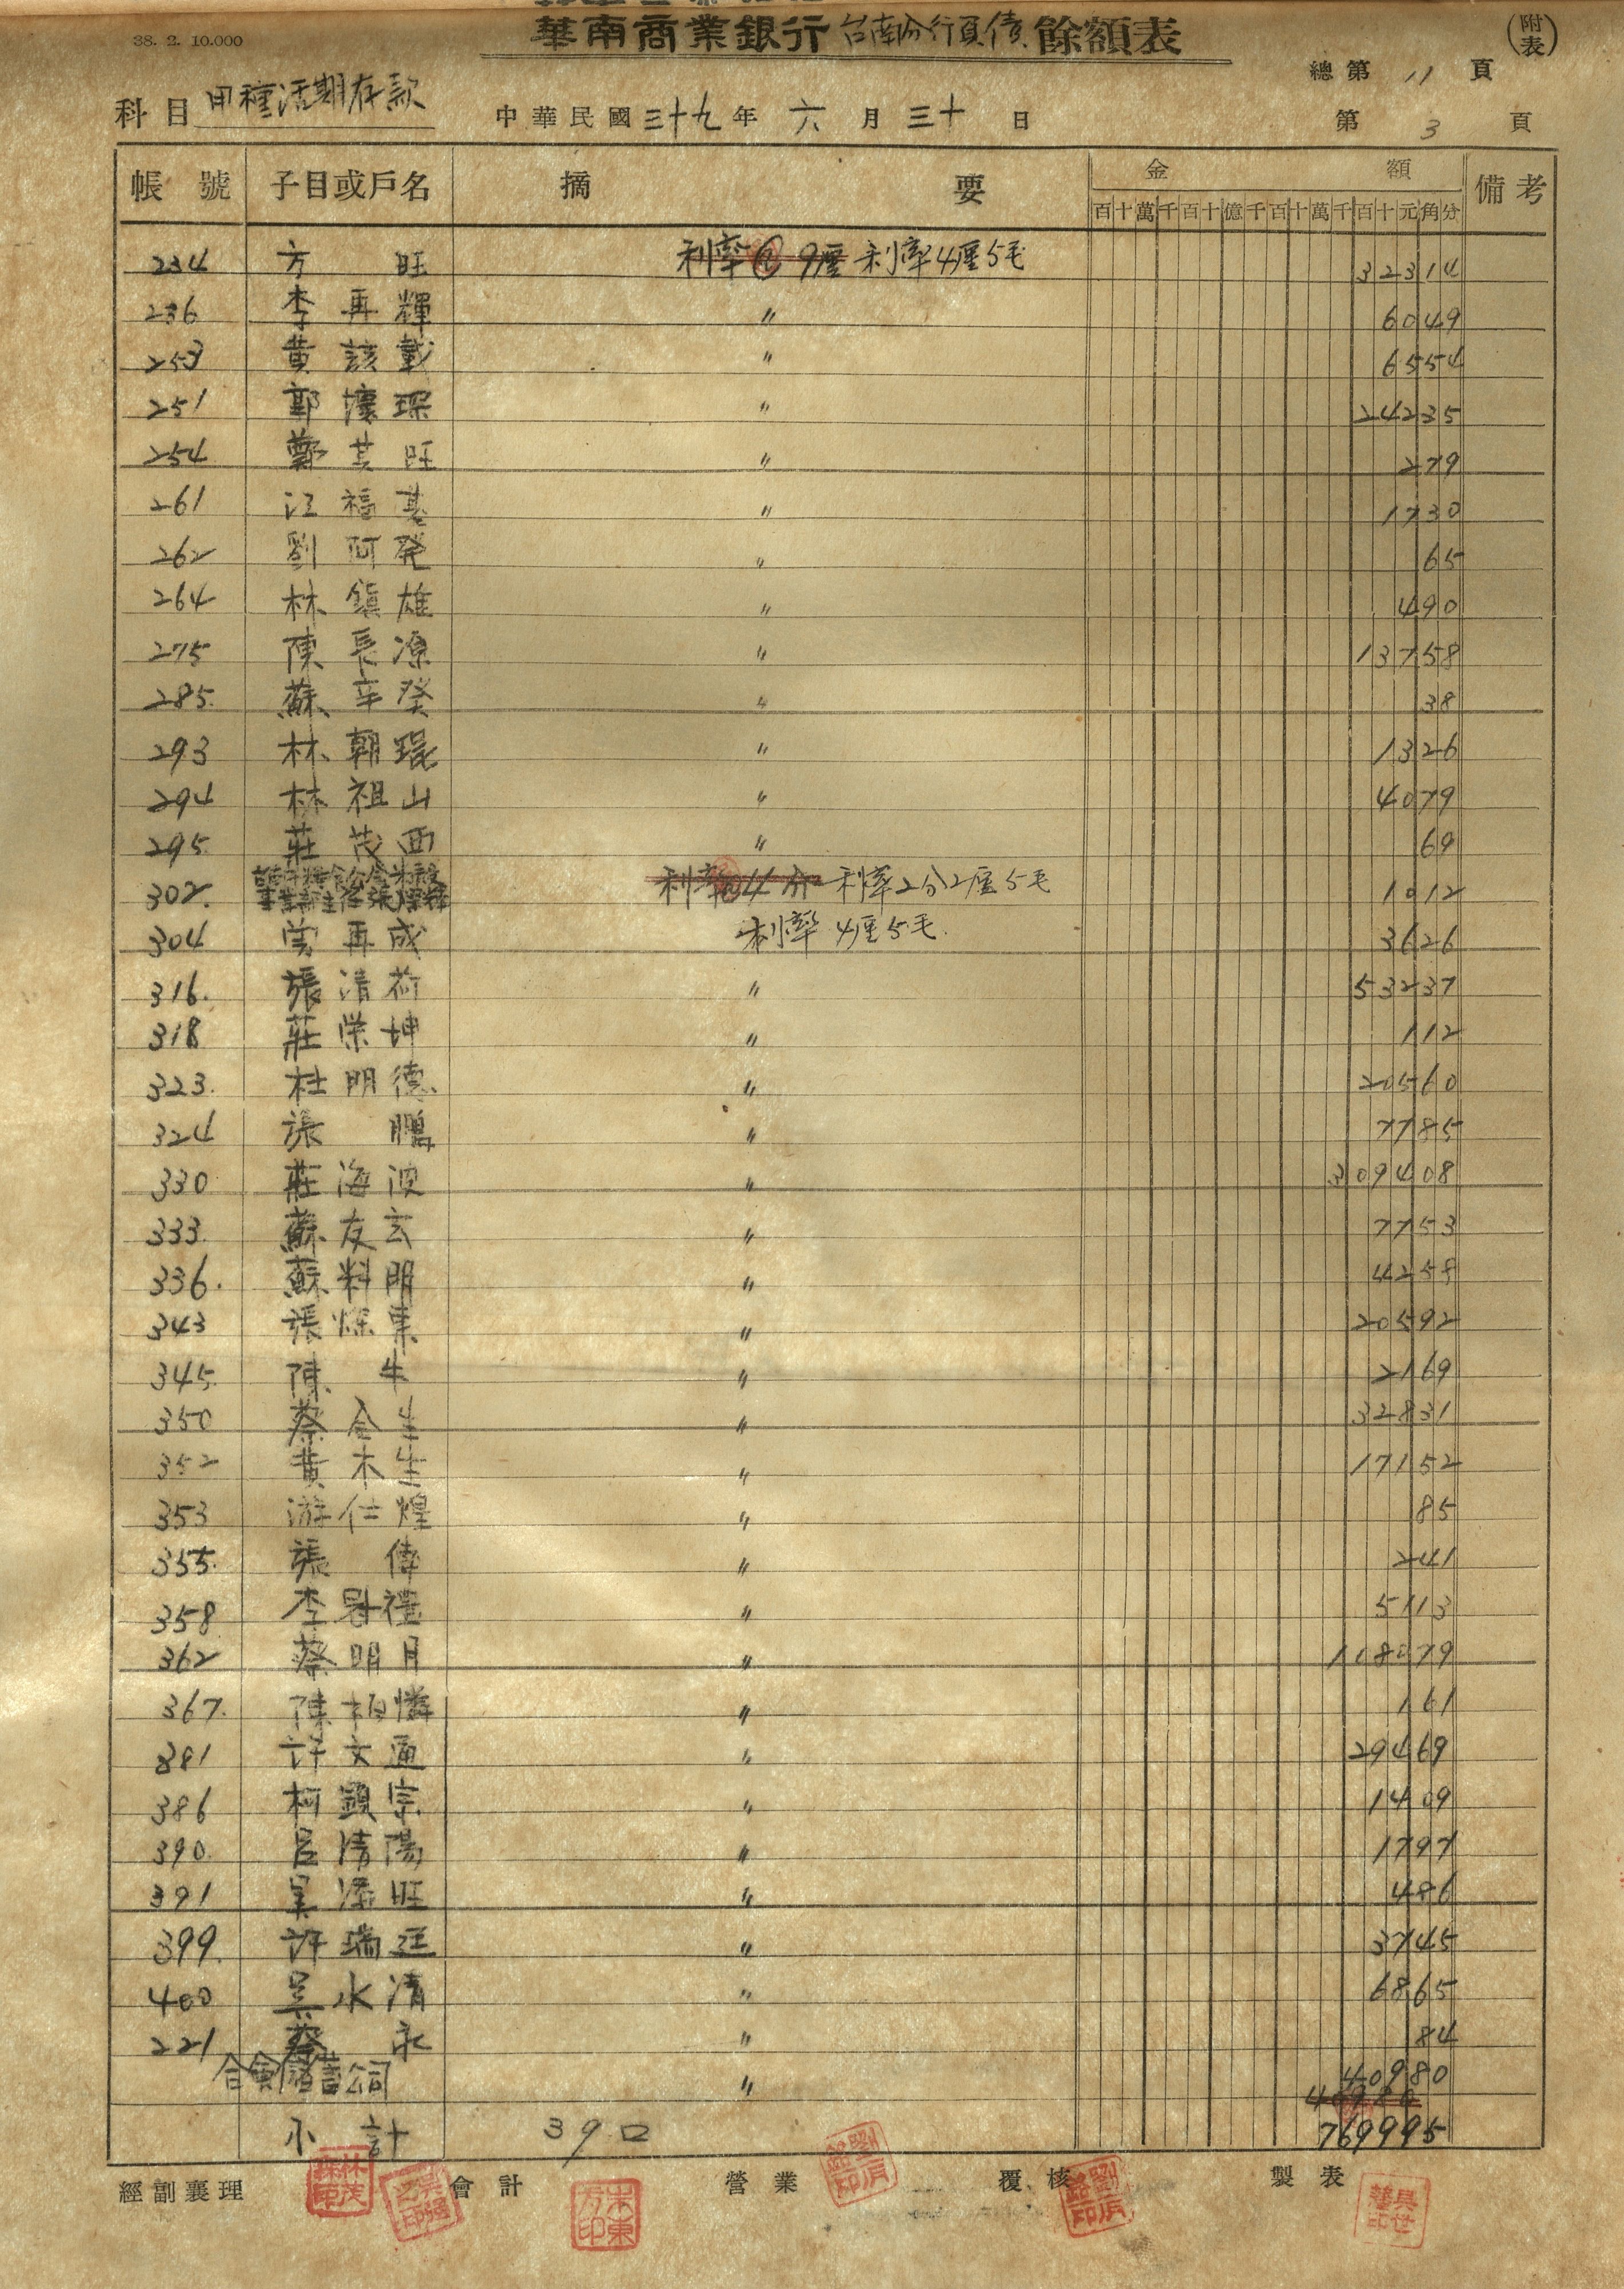 華南商業銀行台南分行負債餘額表
(附表)
38. 2. 10.000
總第 11 頁
科目 甲種活期存款
中華民國三十九年 六月 三十日
第 3 頁
帳號 子目或戶名 摘要 金額 備考
百十萬千百十億千百十萬千百十元角分
234 方旺 利率@9厘 利率4厘5毛 32314
236 李再輝 〃 6049
253 黄該戴 〃 6554
251 郭壞琛 〃 24235
254 鄭其旺 〃 279
261 江福基 〃 1730
262 劉阿発 〃 65
264 林鎮雄 〃 490
275 陳長源 〃 13758
285. 蘇辛癸 〃 38
293 林朝琨 〃 1326
294 林祖山 〃 4079
295. 莊茂西 〃 69
302. 利率@4分 利率2分2厘5毛 1012
304 再成 利率 4厘5毛. 3626
316. 張清荷 〃 53237
318 莊榮坤 〃 112
323. 杜明德 〃 20560
324 張鵬 〃 7785
330 莊海波 〃 309408
333. 蘇友玄 〃 7753
336. 蘇料明 〃 4258
343 張燦東 〃 20592
345. 陳牛 〃 2169
350 蔡金生 〃 32831
352 黄木生 〃 17152
353 游仁煌 〃 85
355. 張偉 〃 241
358 李昇禮 〃 5113
362 蔡明月 〃 118879
367. 陳柏憐 〃 161
381 許文通 〃 29469
386 柯顕宗 〃 1409
390. 呂清陽 〃 1797
391 吳添旺 〃 486
399. 許瑞廷 〃 3745
400 吳水清 〃 6865
221 蔡永 〃 84
合會儲蓄公司 〃 40980
40980
小計 39口 769995
經副襄理 會計 營業 覆核 製表